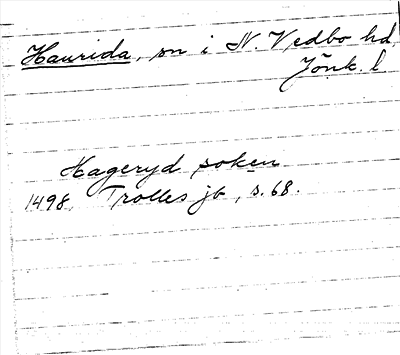 Haurida, sn i N. Vedbo hd,
Jönk. l
Hageryd soken
1498, Trolles jb, s. 68.